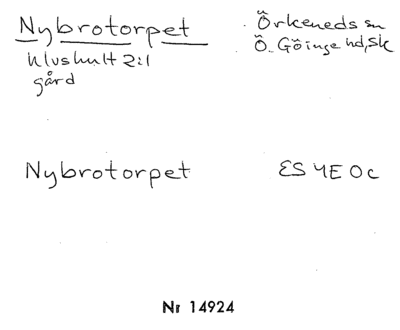 Nybrotorpet
Örkeneds sn
Ulvshult 2:1
Ö. Göinge hd, Sk
gård
Nybrotorpet
ES 4E 0c
Nr 14924